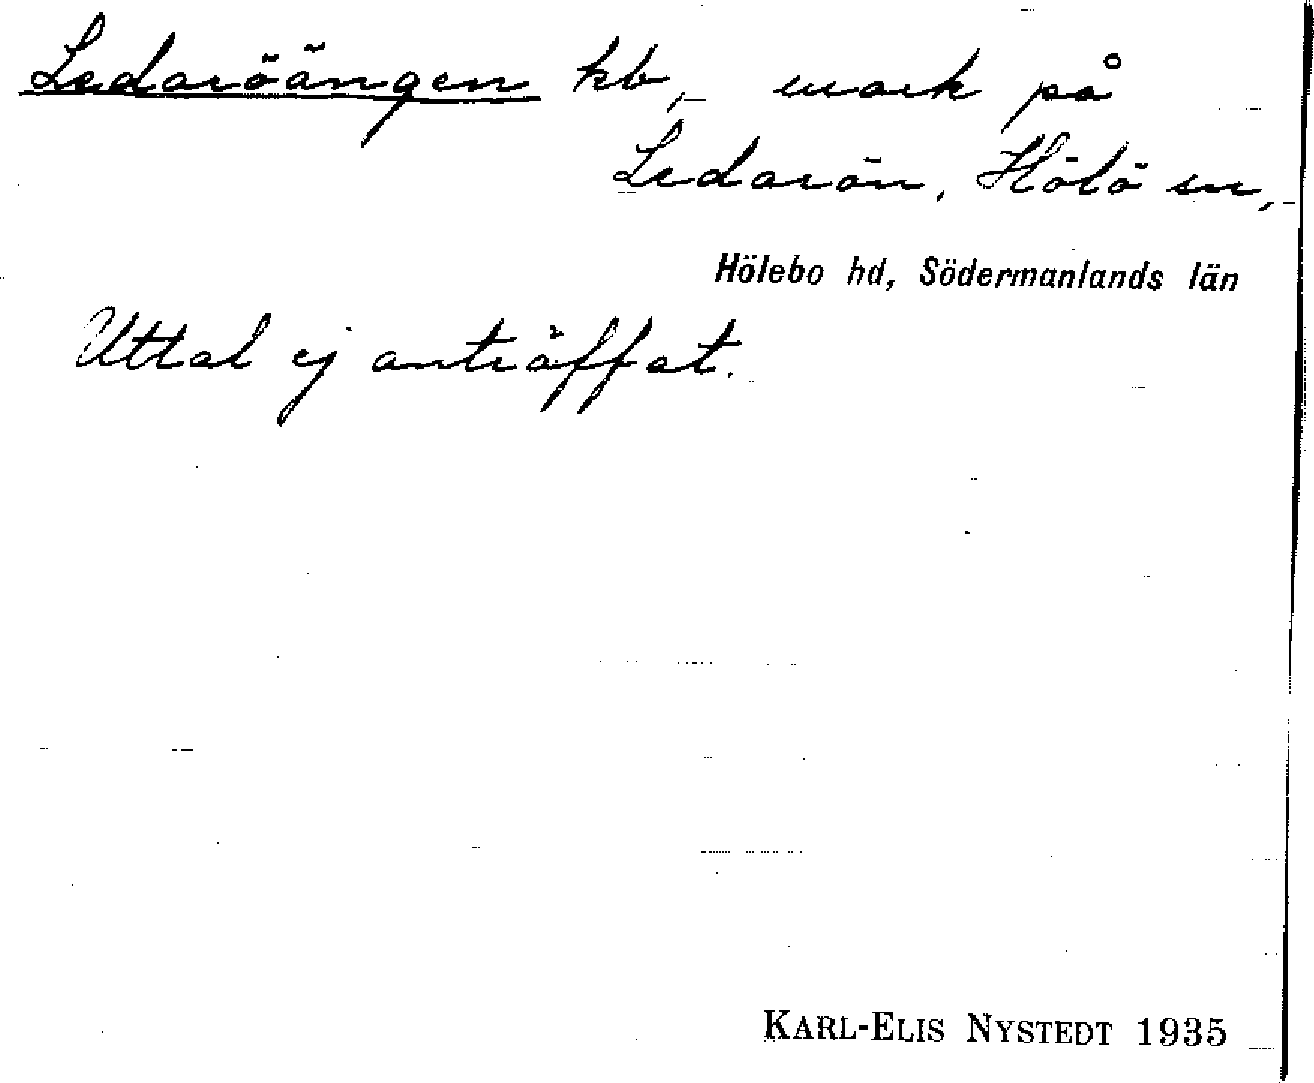 Ledaröängen kb, mark på
Ledarön, Hölö sn,
Hölebo hd, Södermanlands län
Uttal ej anträffat.
KARL-ELIS NYSTEDT 1935